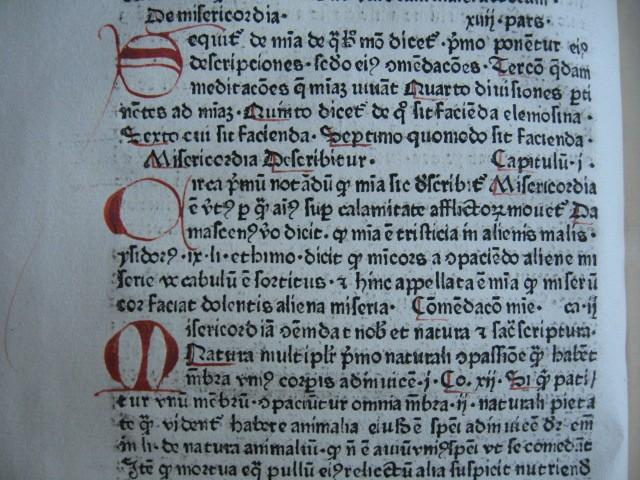 De misericordia· xiiij·pars·
Sequit̄ de mīa de q̄ hͦ mō dicet̄· p̄mo ponētur eiꝰ
descripciones· sedͦo eiꝰ ↄmēdacōes· Tercō q̄dam
meditacōes q̄ mīaꝫ iuuāt Quarto diuisiones ꝑti
nētes ad mīaꝫ· Quinto dicet̄ de qͦ sit faciēda elemosina·
Sexto cui sit facienda· Septimo quomodo sit facienda·
Misericordia Describitur· Capitulū·i·
Circa p̄mū notādū ꝙ mīa sic dscribit̄ Misericordia
ē v̄tꝰ ꝑ q̄ aīꝰ suꝑ calamitate afflictoꝝ mouet̄ Da
mascenꝰ v̄o dicit· ꝙ mīa ē tristicia in alienis malis·
ysidorꝰ·ix·li·ethimo·dicit ꝙ mīcors a ↄpaciēdo aliene mi
serie vocabulū ē sortitus· ⁊ hinc appellata ē mīa ꝙ miserū
cor faciat dolentis aliena miseria· Cōmēdacō mīe· ca·ij
Misericordiā ↄmēdat nob̄ et natura ⁊ sac̄ scriptura·
Natura multiplr̄ p̄mo naturali ↄpassiōe q̄ habēt
mēbra vniꝰ corꝑis adinuicē·i·Co·xij·Si q̄ pati/
tur vnū mēbrū· ↄpaciūtur omnia mēbra·ij·naturali pieta
te q̄ vidēt̄ habere animalia eiusdē spēi adinuicē dr̄ em̄
in li·de natura animaliū·ꝙ nō ē auiū vniꝰ spēi vt se comedāt
Itē ꝙ mortua eq̄ pullū eiꝰ relictū alia suspicit nutriend